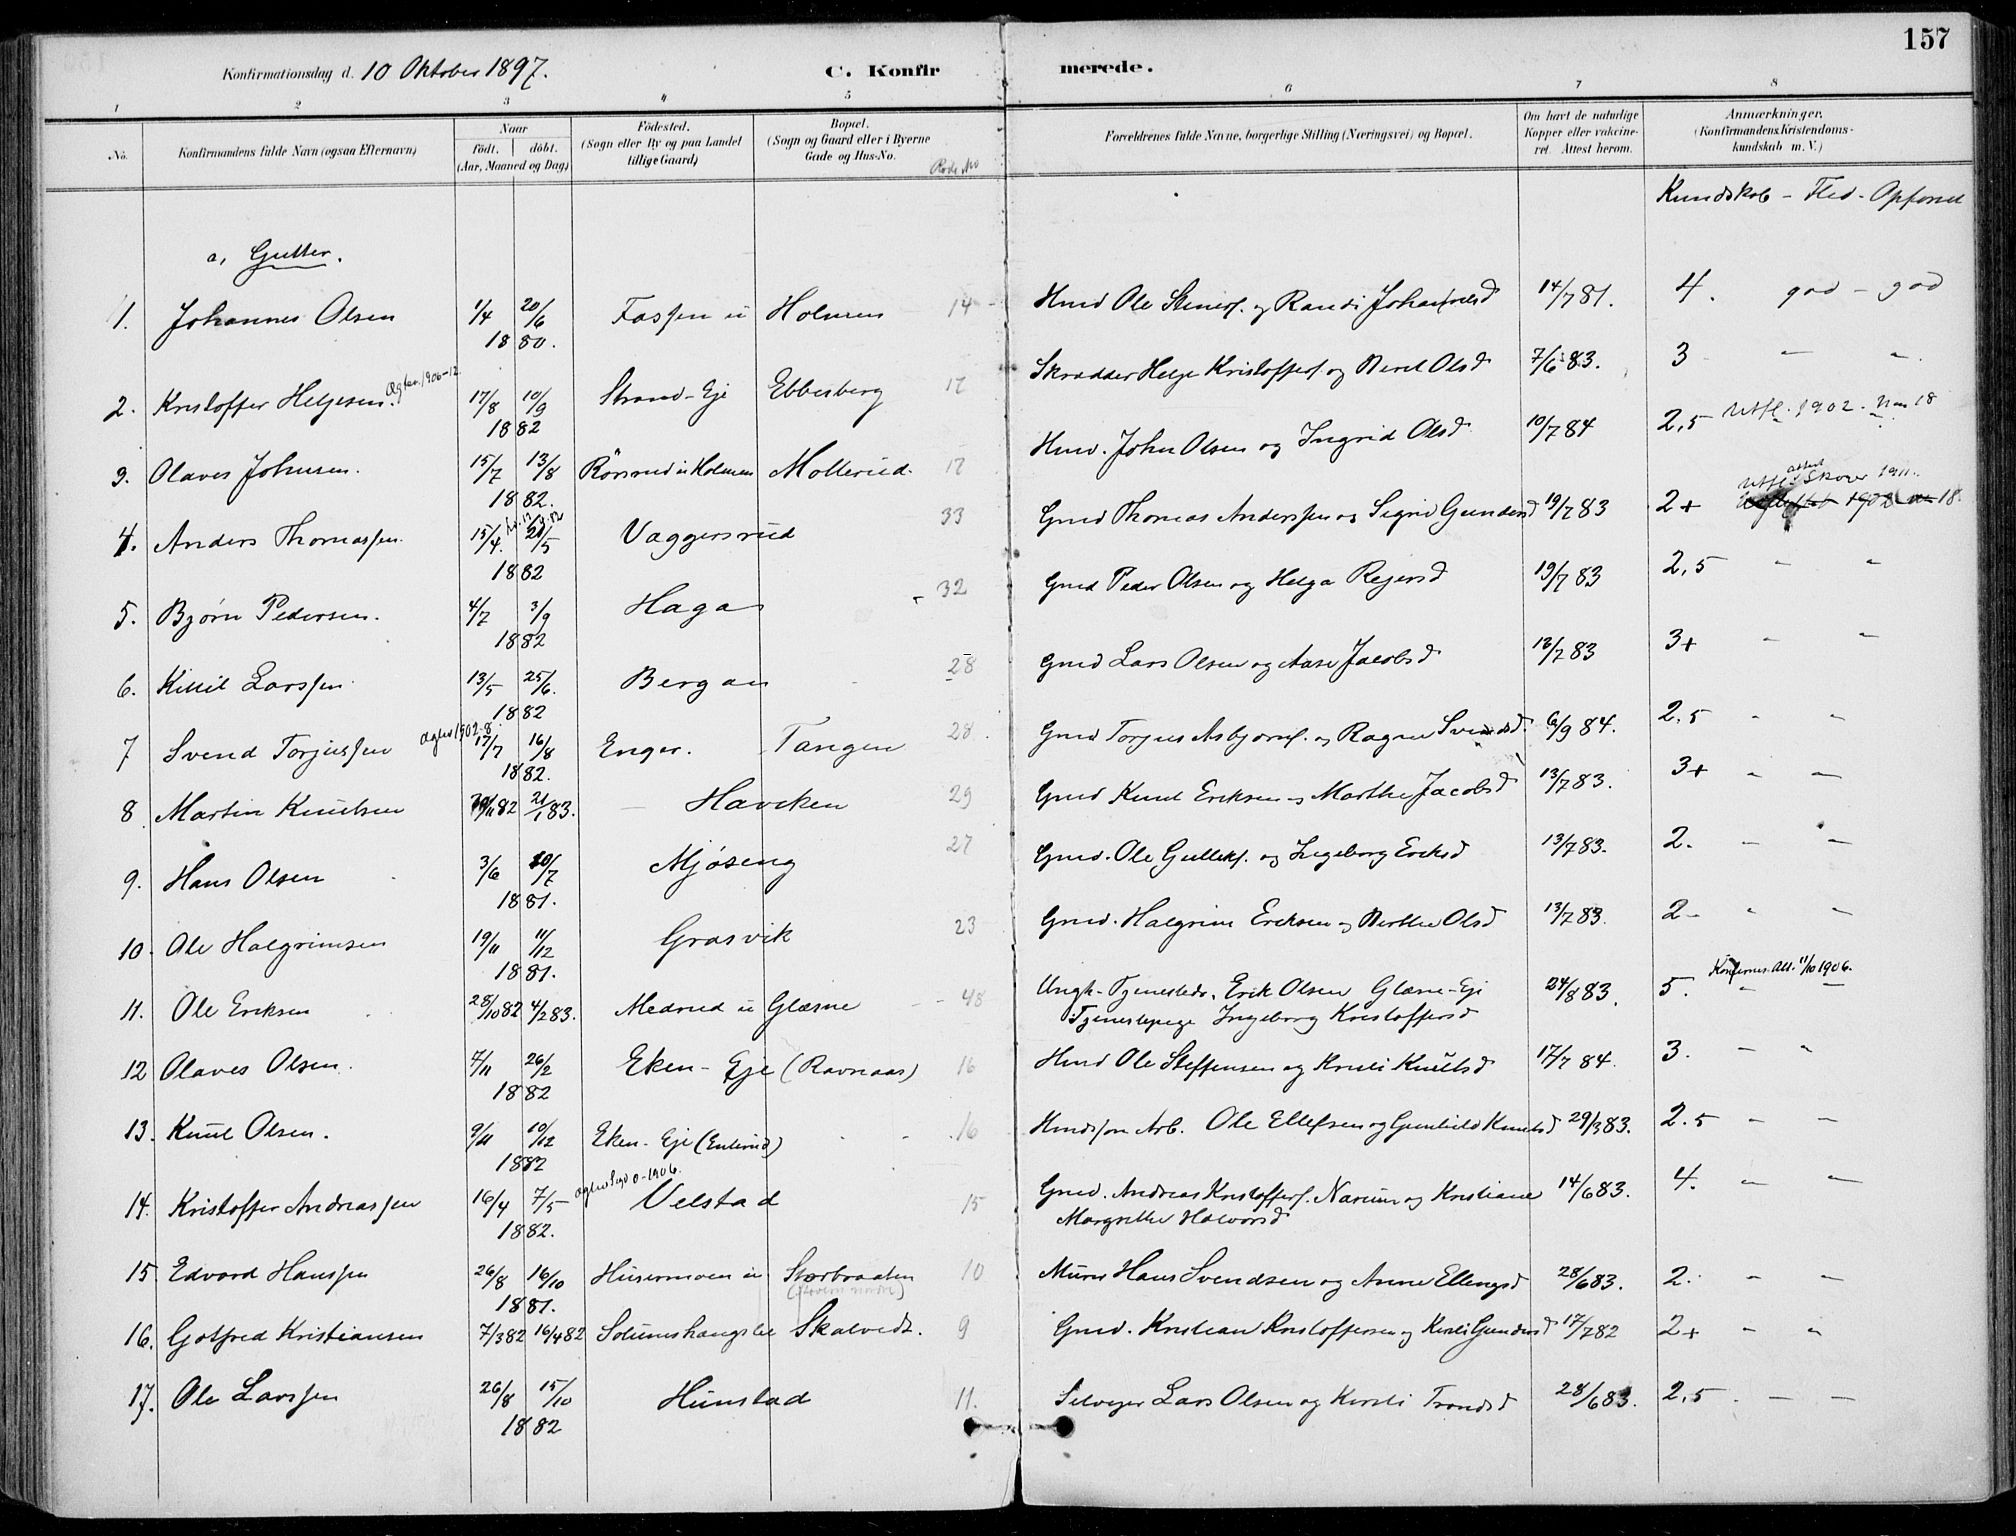 157
Konfirmationsdag d. 10 Oktober 1897. C. Konfirmerede.
1 2 3 4 5 6 7 8
No. Konfirmandens fulde Navn (ogsaa Efternavn) Naar født. døbt. (Aar, Maaned og Dag) Fødested. (Sogn eller By og paa Landet tillige Gaard) Bopæl. (Sogn og Gaard eller i Byerne Gade og Hus-No. Rode No Forældrenes fulde Navne, borgerlige Stilling (Næringsvei) og Bopæl. Om havt de naturlige Kopper eller vakcineret. Attest herom. Anmærkninger. (Konfirmandens Kristendomskundskab m. V.)
Kundskab - Flid - Opførsel
a, Gutter.
1. Johannes Olsen 1/4 20/6 1880. Fossen u Holmen 14 Hmd Ole Steners. og Randi Johannesd 14/7 81. 4. god - god
2. Kristoffer Helgesen. 17/8 10/9 1882 Strand-Eje Ebbesberg 17 Skrædder Helge Kristoffers. og Beret Olsd 7/6 83. 3 - "
3. Olaves Johnsen. 15/7 13/8 1882. Rønsrud u Holmen Mollerud. 17 Hmd. John Olsen og Ingrid Olsd 10/7 84 2,5 Utfl. 1902. Nm 18
4. Anders Thomassen 15/4 21/5 1882 Vaggersrud 33 Gmd Thomas Anderssen og Sigrid Gundersd 19/7 83 2+ Utfl. attest Skoger 1911.
5. Bjørn Pedersen. 4/7 3/9 1882 Haga 32 Gmd Peder Olsen og Helga Rejersd 19/7 83 2,5 " "
6. Kittil Larssen 13/5 25/6 1882 Bergan 28 Gmd Lars Olsen og Aase Jacobsd 13/7 83 3+ " "
7 Svend Torjussen 17/7 16/8 1882. Enger. Tangen 28 Gmd Torjus Asbjørns. og Ragne Svendsd. 6/9 84. 2,5 " "
8 Martin Knutsen 82 21/1 83. Havcken 29 Gmd Knut Eriksen og Marthe Jacobsd 13/7 83. 3+ " "
9. Hans Olsen 3/6 10/7 1881. Mjøseng 27 Gmd. Ole Gulleks. og Ingeborg Eriksd 13/7 83. 2. - "
10. Ole Halgrimsen 19/11 11/12 1881. Grasvik 23 Gmd. Halgrim Eriksen og Berthe Olsd 13/7 83. 2 - " "
11. Ole Eriksen 28/10 82 4/2 83. Medrud u Glæsne 48 Ungk. Tjenestedr. Erik Olsen Glæsne-Eje
Tjenestepige Ingeborg Kristoffersd 24/8 83. 5. Konfirms. Att. 11/10 1906.
12 Olaves Olsen. 7/11 26/2 1882 Eken-Eje (Ravnaas) 16 Hmd Ole Steffensen og Kristi Knutsd 17/7 84. 3. - "
13. Knut Olsen. 9/11 10/12 1882 Eken-Eje (Enterud) 16 Hmdssøn Arb. Ole Ellefsen og Gunhild Knutsd 29/3 83. 2.5 - -
14. Kristoffer Andreassen 16/4 7/5 1882. Velstad 15 Gmd. Andreas Kristoffers. Narum og Kristiane
Margrethe Halvorsd 14/6 83. 4. - -
15 Edvard Hanssen 26/8 16/10 1881. Husermoen u Storbraaten 10 Murer Hans Svendsen og Anne Ellengsd 28/6 83. 2. " "
16. Gotfred Kristiansen 7/3 82 16/4 82 Skalvedt. 9 Gmd. Kristian Kristoffersen og Kirsti Gundersd 17/7 82 2+ - "
17. Ole Larssen 26/8 15/10 1882 Hunstad 11. Selvejer Lars Olsen og Kirsti Trondsd 28/6 83. 2,5 - -